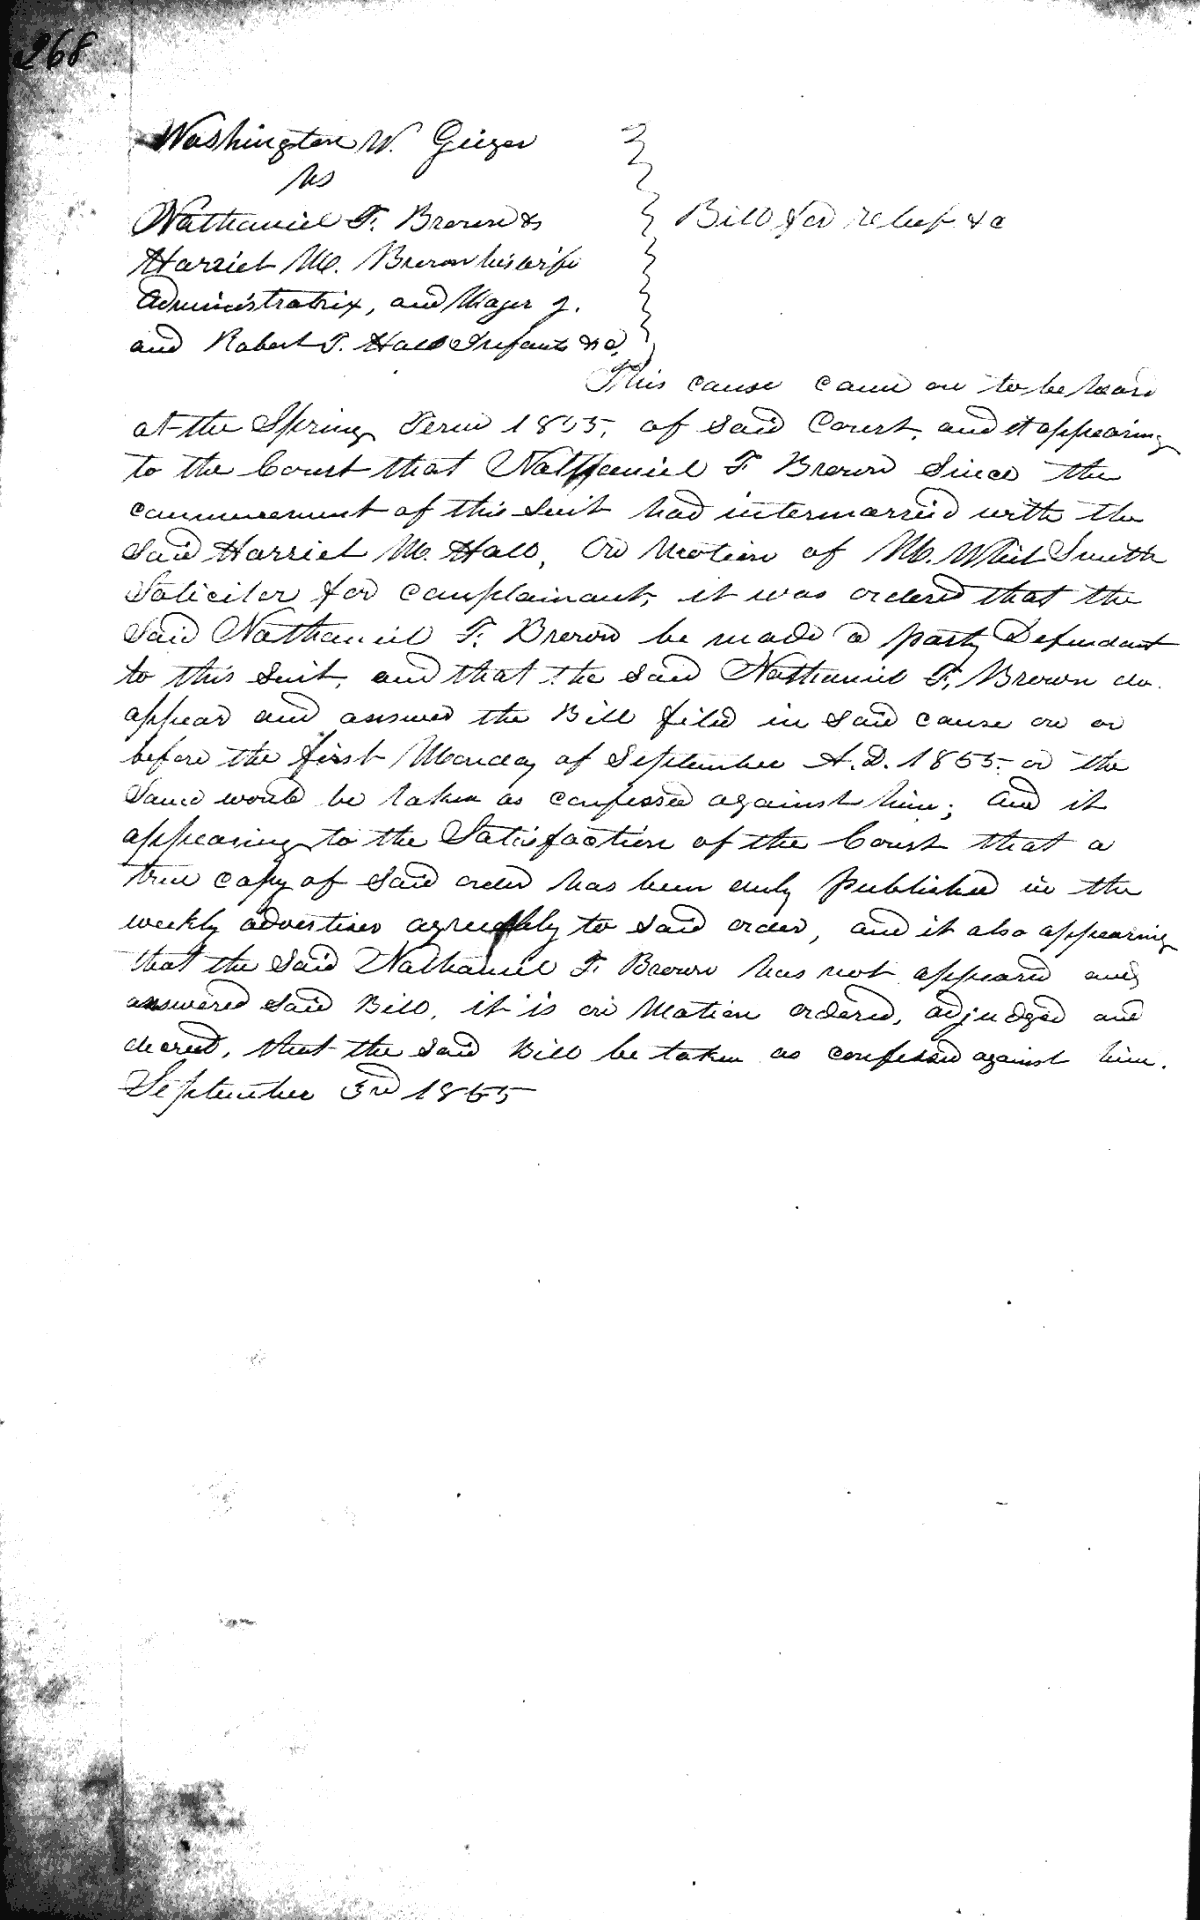 268
Washington W. Geiger
vs
Nathaniel F. Brown &
Harriet M. Brown his wife
Administratrix, and Mager J.
and Robert T. Hall Infants &c.
Bill for relief &c
This cause came on to be heard
at the Spring Term 1855, of said Court, and it appearing
to the Court that Nathaniel F. Brown since the
commencement of this Suit had intermarried with the
said Harriet M. Hall, On Motion of M. Whit Smith
Solicitor for complainant, it was ordered that the
Said Nathaniel F. Brown be made a party Defendant
to this suit, and that the said Nathaniel F. Brown do
appear and answer the Bill filed in said cause on or
before the first Monday of September A.D. 1855. or the
Same would be taken as confessed against him; and it
appearing to the Satisfaction of the Court that a
true copy of said order has been duly published in the
weekly advertiser agreeably to said order, and it also appearing
that the Said Nathaniel F. Brown has not appeared and
answered said Bill, it is on Motion ordered, adjudged and
decreed, that the said Bill be taken as confessed against him.
September 3rd 1855